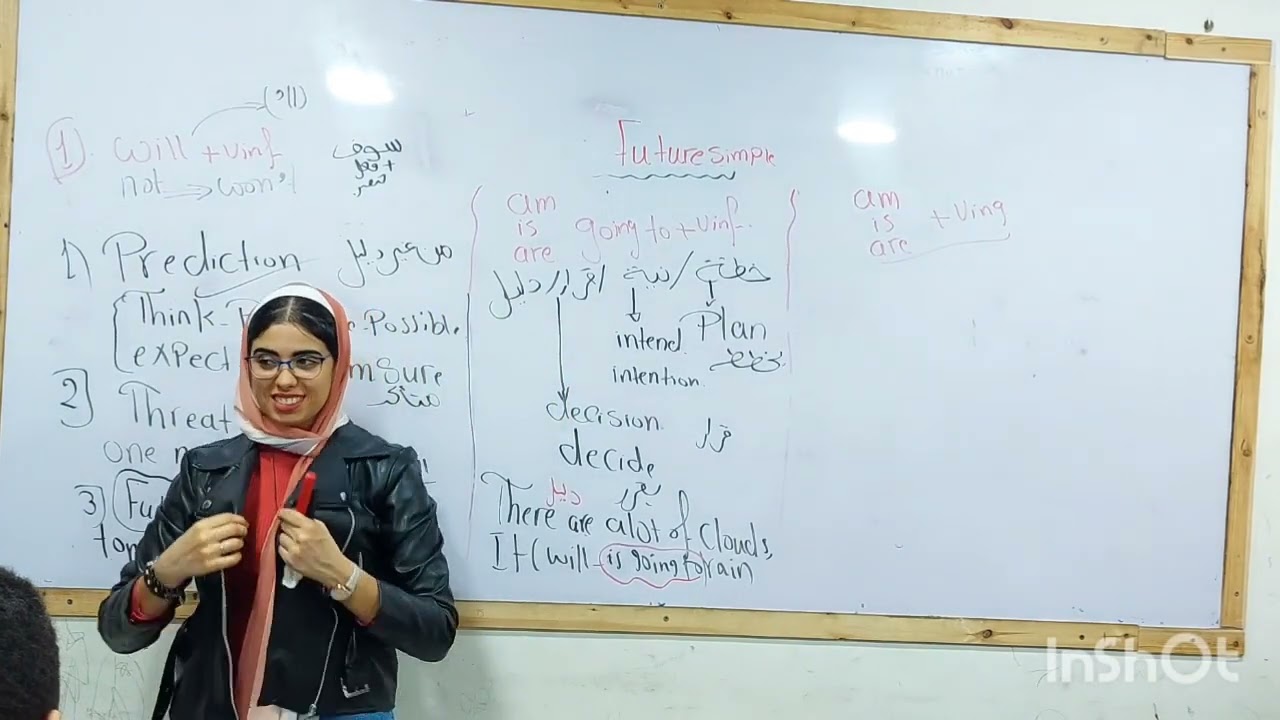 Future simple
1) will + Vinf ('ll)
not → won't
سوف + فعل
1) Prediction من غير دليل
Think Possible.
expect sure
متأكد
2] Threat
one
3]
am
is
are
going to + Vinf.
خطة / نية / قرار / دليل
intend Plan
intention. يخطط
decision. قرار
decide
دليل
There are a lot of clouds,
It (will - is going to) rain
am
is
are
+ Ving
InShOt